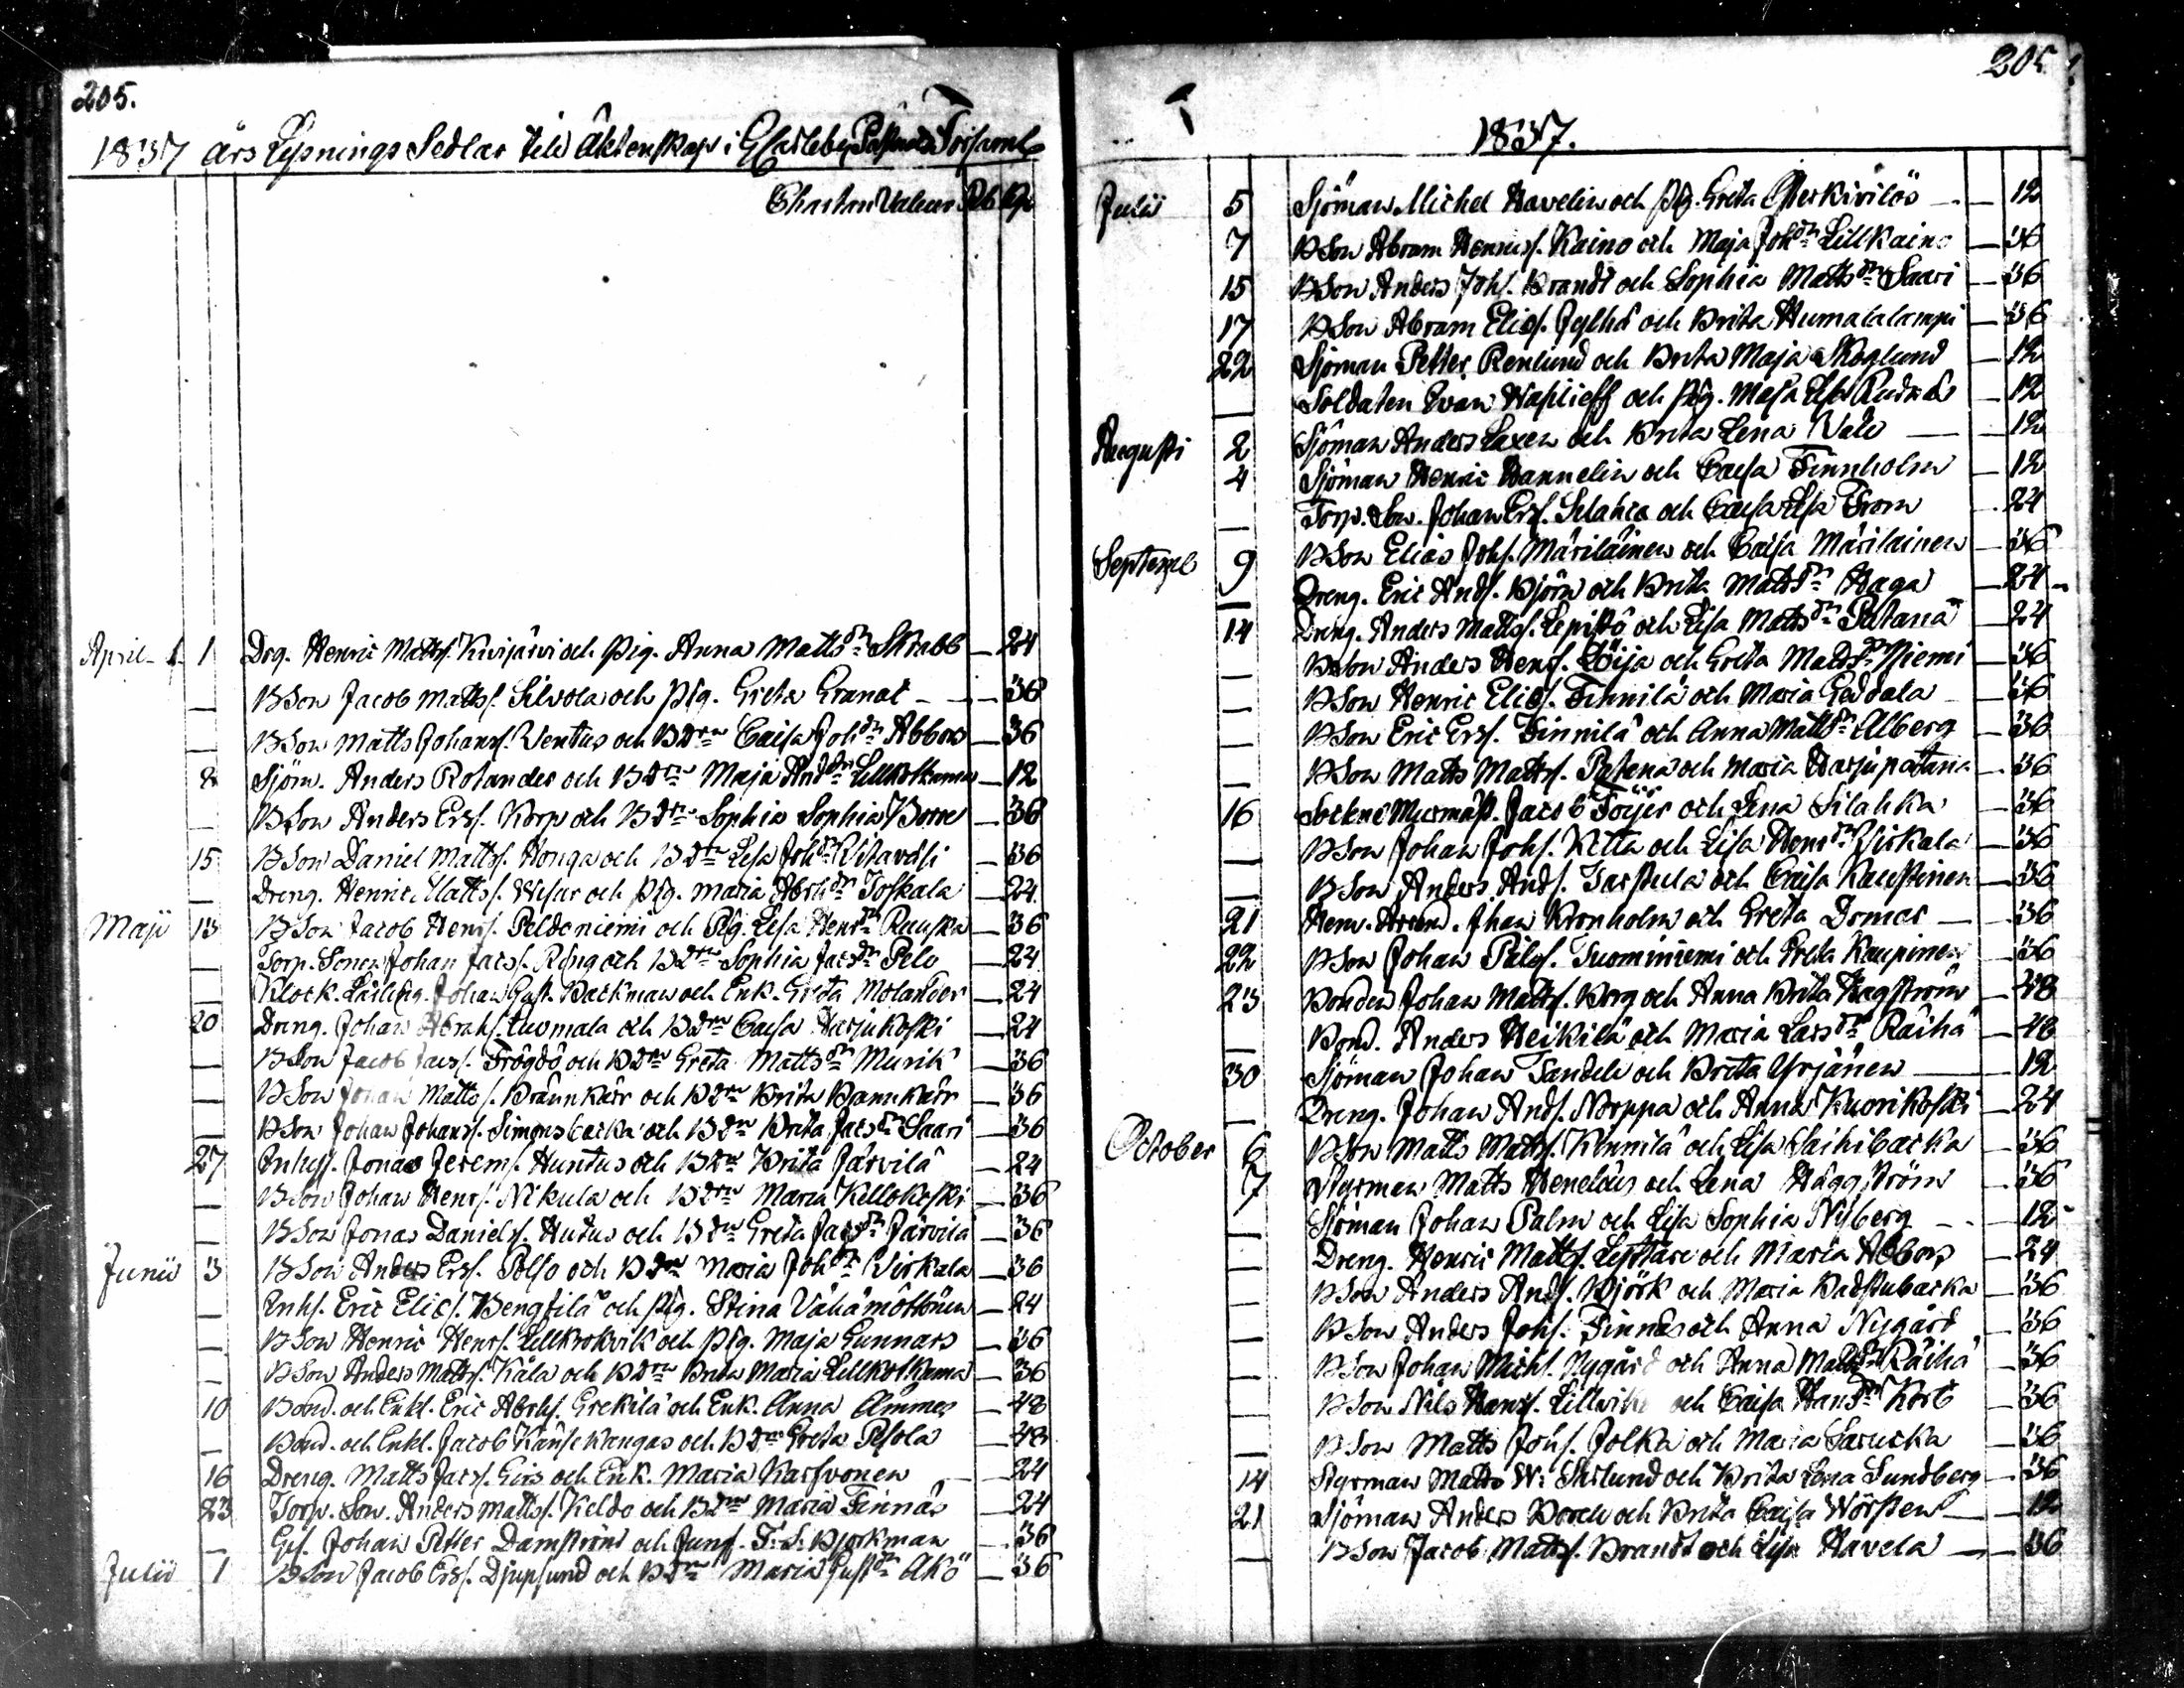 205.
1837 års Lysnings Sedlar till Äktenskap i GCarleby Församl
Chartae Valeur Rb Kp
April 1 Drg. Henric Matts. Kivijärvi och Pig. Anna Mattsdr Skrabb — 24
— BSon Jacob Matts. Silvola och Pig. Greta Granat — 36
— BSon Matts Johans. Ventus och BDrn Caisa Johdr Abbors — 36
8 Sjöm. Anders Rolander och BDrn Maja Anddr Lillkotkama — 12
— BSon Anders Ers. Korp och BDrn Sophia Sophia — 36
15 BSon Daniel Matts. Honga och BDrn Lisa Johdr — 36
— Dreng. Henric Matts. och Pig. Maria Abrhdr — 24
Maji 13 BSon Jacob Henrs. Peldoniemi och Pig. Lisa Henrdr Rauska — 36
— Torp. Sonen Johan Jacs. Ring och BDrn Sophia Jacsdr Pelo — 24
— Klock. Lärling. Johan Gust. Backman och Enk. Greta Molander — 24
20 Dreng. Johan Abrahs. Luomala och BDrn Caisa Harjukoski — 24
— BSon Jacob Jacs. Frögdö och BDrn Greta Mattsdr Murik — 36
— BSon Johan Matts. Brännkärr och BDrn Brita Bannkärr — 36
— BSon Johan Johans. Simonsbacka och BDrn Brita Jacsdr Saari — 36
27 Inhys. Jonas Jerems. Huntus och BDrn Brita Järvilä — 24
— BSon Johan Henrs. Nikula och BDrn Maria Kellokoski — 36
— BSon Jonas Daniels. Hutus och BDrn Greta Jacsdr Järvilä — 36
Junii 3 BSon Anders Ers. Polso och BDrn Maria Johdr Virkala — 36
— Inhs. Eric Elics. Bengtilä och Pig. Stina Vähämöttönen — 24
— BSon Henric Henrs. Lillkrokvik och Pig. Maja Gunnars — 36
— BSon Anders Matts. Kåla och BDrn Brita Maria Lillkotkama — 36
10 Bond. och Enkl. Eric Abrhs. Grekilä och Enk. Anna Ämmes — 48
— Bond. och Enkl. Jacob Känsekangas och BDrn Greta Pesola — 48
16 Dreng. Matts Jacs. och Enk. Maria Karhvonen — 24
23 Torp. Son. Anders Matts. Keldo och BDrn Maria Finnäs — 24
— Ges. Johan Petter Damström och Jungf. F: S: Bjorkman — 36
Julii 1 BSon Jacob Ers. Djupsund och BDrn Maria Gustdr Åkö — 36
205
1837.
Julii 5 Sjöman Michel Havelin och Pig. Greta — 12
7 BSon Abram Henrics. Kaino och Maja Johdr Lillkaino — 36
15 BSon Anders Johs. Brandt och Sophia Mattsdr Saari — 36
17 BSon Abram Elics. Jylhä och Brita Humalalampi — 36
22 Sjöman Petter Renlund och Brita Maja Skoglund — 12
— Soldaten Ivan Wasilieff och Pig. Maja Lisa Rudnäs — 12
Augusti 2 Sjöman Anders Laxen och Brita Lena — 12
4 Sjöman Henric Hannelin och Caisa Finnholm — 12
— Torp. Son. Johan Ers. Silahka och Caisa Lisa From 24
Septemb 9 BSon Elias Johs. Märiläinen och Caisa Märiläinen — 36
— Dreng. Eric Ands. Björn och Brita Mattsdr Haga — 24
14 Dreng. Anders Matts. Lepistö och Lisa Mattsdr Patana — 24
— BSon Anders Henrs. Löija och Greta Mattsdr Niemi — 36
— BSon Henric Elics. Finnilä och Maria Geddala — 36
— BSon Eric Ers. Finnilä och Anna Mattsdr Alberg — 36
— BSon Matts Matts. Patana och Maria Harjupatana — 36
16 Sockne Murmäst. Jacob Foijer och Lena Silahka — 36
— BSon Johan Johs. Kitta och Lisa Henrdr Virkala — 36
— BSon Anders Ands. Tastula och Caisa Kaustinen — 36
21 Hem. Johan Kronholm och Greta Domar — 36
22 BSon Johan Pals. Tuominiemi och Greta Kaupinen — 36
23 Bonden Johan Matts. Borg och Anna Brita Hagström — 48
— Bond. Anders Heikilä och Maria Larsdr Räihä — 48
30 Sjöman Johan Sandell och Brita Yrjänen — 12
— Dreng. Johan Ands. Norppa och Anna Kuorikoski — 24
October 6 BSon Matts Matts. Kinnilä och Lisa Saihibacka — 36
7 Styrman Matts Henelius och Lena Häggström — 36
— Sjöman Johan Palm och Lisa Sophia Nyberg — 12
— Dreng. Henric Matts. och Maria Abbors — 24
— BSon Anders Ands. Björk och Maria Badstubacka — 36
— BSon Anders Johs. Finnäs och Anna Nygård — 36
— BSon Johan Michs. Nygård och Anna Mattsdr Räihä — 36
— BSon Nils Hans. Lillvik och Caisa Hansdr — 36
— BSon Matts Johs. Jolka och Maria Sarucka — 36
14 Styrman Matts W: och Brita Lena Sundberg — 36
21 Sjöman Anders och Brita Caisa Wörsten — 12
— BSon Jacob Matts. Brandt och Lisa Havela — 36